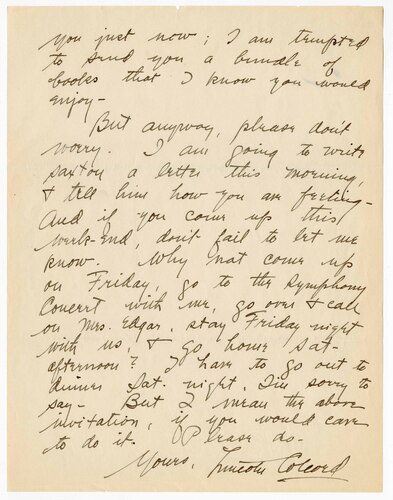 you just now; I am tempted
to send you a bundle of
books that I know you would
enjoy-
But anyway, please don't
worry. I am going to write
Saxton a letter this morning,
& tell him how you are feeling-
And if you come up this
week-end, don't fail to let me
know. Why not come up
on Friday, go to the Symphony
Concert with me, go over & call
on Mrs. Edgar, stay Friday night
with us, & go home Sat-
afternoon? I have to go out to
dinner Sat. night, I'm sorry to
say- But I mean the above
invitation, if you would care
to do it. Please do-
Yours, Lincoln Colcord